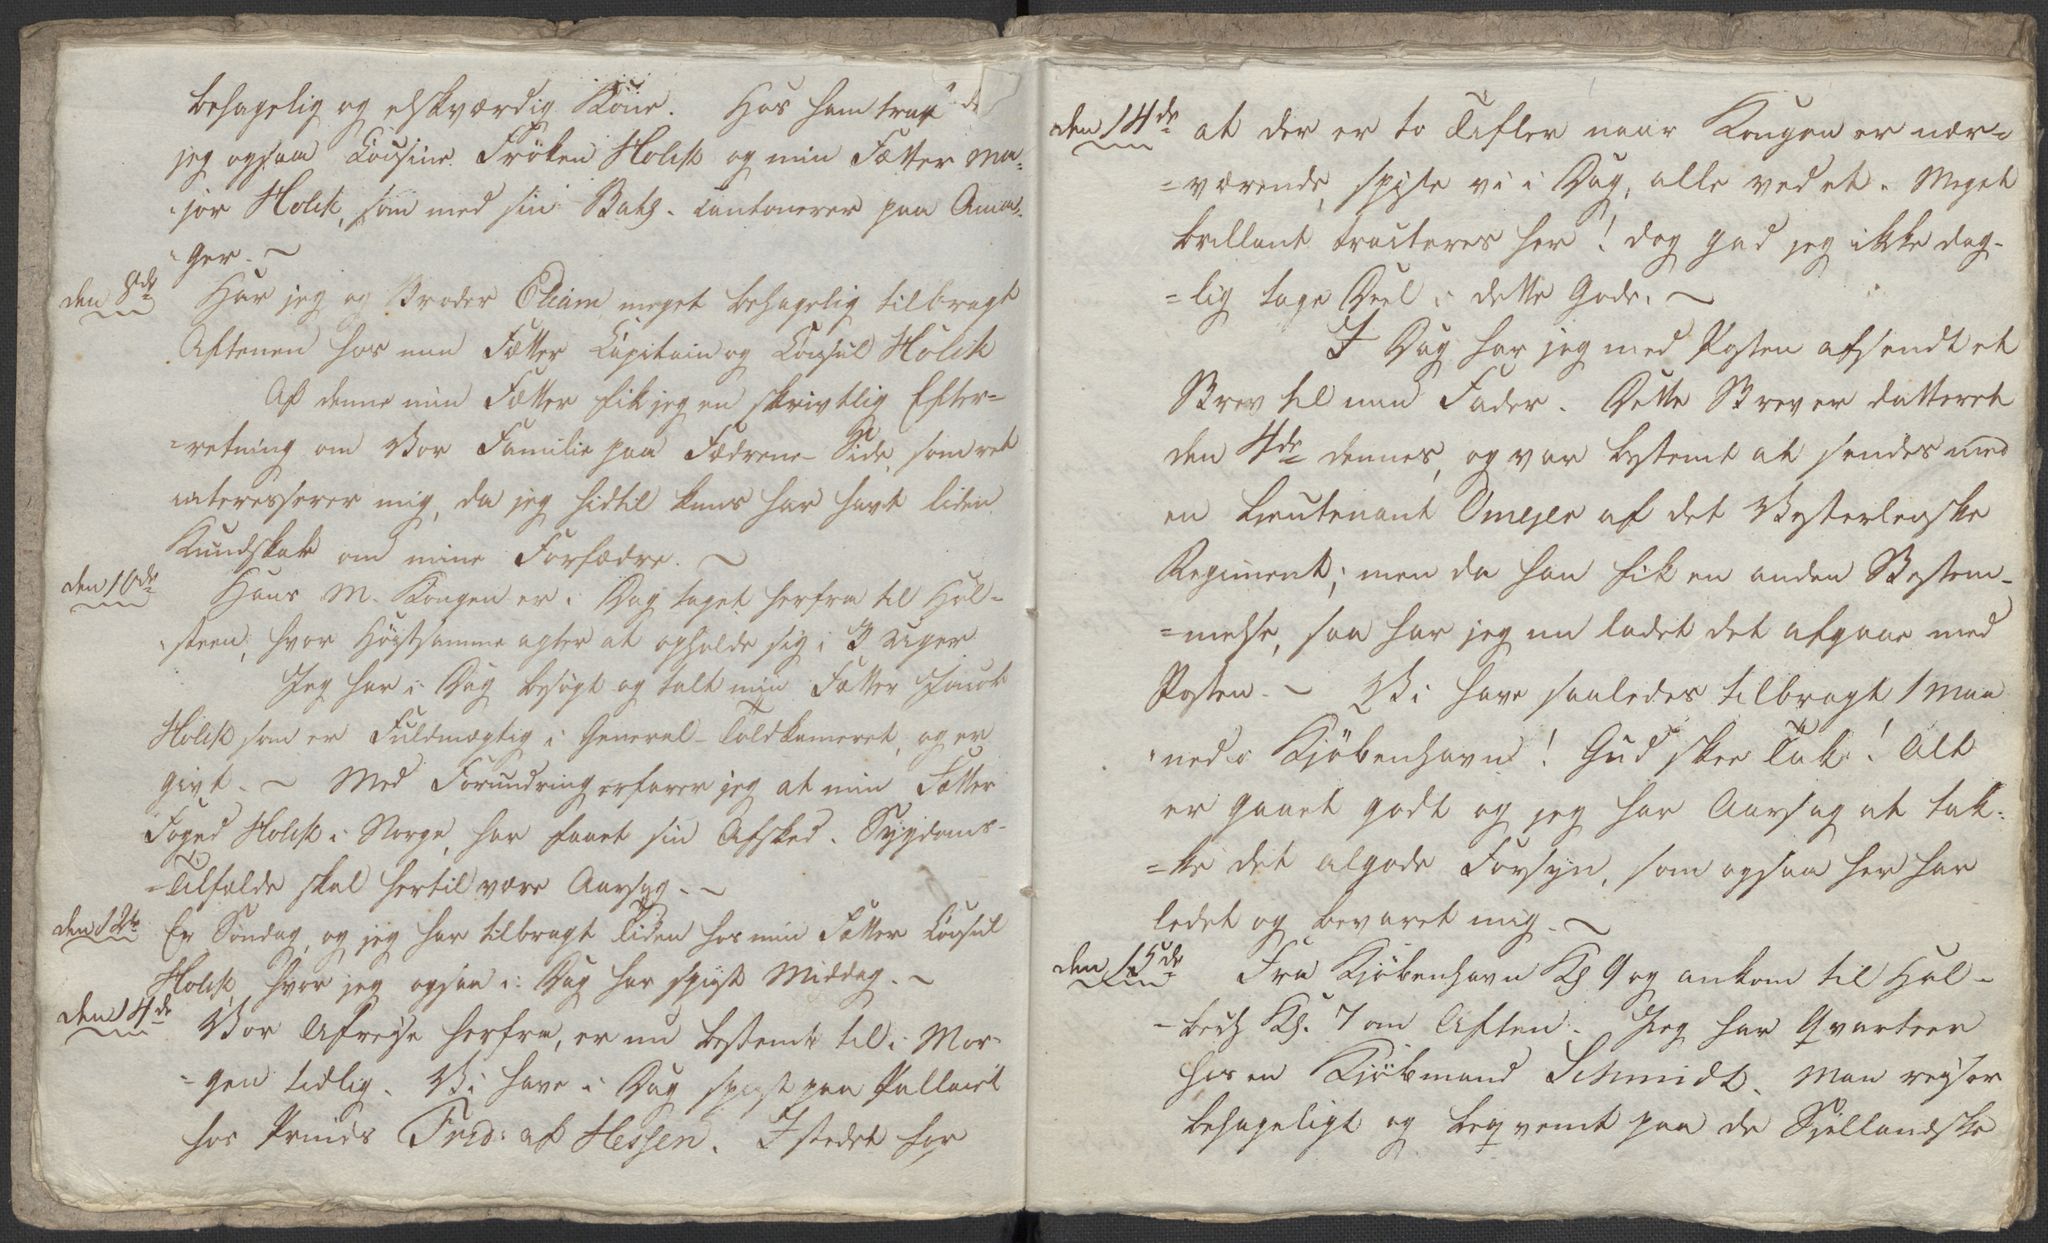 behagelig og elskværdig Kone. Hos ham traf
jeg ogsaa Cousine Frøken Holck og min Fætter Ma-
-jor Holck, som med sin Batl. cantonerer paa Ama-
-ger. ~
den 8de Har jeg og Broder Eliam meget behagelig tilbragt
Aftenen hos min Fætter Capitain og Consul Holck
Af denne min Fætter fik jeg en skrivtlig Efter=
=retning om Vor Familie paa Fædrene-Side, som ret
interesserer mig, da jeg hidtil kuns har havt liden
Kundskab om mine Forfædre. ~
den 10de Hans M. Kongen er i Dag taget herfra til Hol=
-steen, hvor Høistsamme agter at opholde sig i 3 Uger
Jeg har i Dag besøgt og talt min Fætter Jacob
Holck som er Fuldmægtig i General-Toldkameret, og er
givt. ~ Med Forundring erfarer jeg at min Fætter
Foged Holck i Norge, har faaet sin Afsked. Sygdoms-
-Tilfælde skal hertil være Aarsag. ~
den 12te Er Søndag, og jeg har tilbragt Tiden hos min Fætter Consul
Holck, hvor jeg ogsaa i Dag har spiist Middag. ~
den 14de Vor Afreise herfra, er nu bestemt til i Mor-
-gen tidlig. Vi have i Dag spiist paa Pallaiet
hos Prinds Frid: af Hessen. I stedet for
den 14de at der er to Tafler naar Kongen er nær=
=værende, spiste vi i Dag, alle ved et. Meget
brillant tracteres her! dog gad jeg ikke dag-
=lig tage Deel i dette Gode. ~
I Dag har jeg med Posten afsendt et
Brev til min Fader. Dette Brev er datteret
den 4de dennes, og var bestemt at sendes med
en Lieutenant Omejer af det Vesterlenske
Regiment; men da han fik en anden Bestem-
=melse, saa har jeg nu ladet det afgaae med
Posten. ~ Vi have saaledes tilbragt 1 Maa
-ned i Kjøbenhavn! Gud skee Tak! Alt
er gaaet godt og jeg har Aarsag at tak-
=ke det algode Forsyn, som ogsaa her har
ledet og bevaret mig. ~
den 15de Fra Kjøbenhavn Kl 9 og ankom til Hol-
-bech Kl. 7 om Aften. Jeg har Qvarteer
hos en Kjøbmand Schmidt. Man reiser
behageligt og beqvemt paa de Siellandske